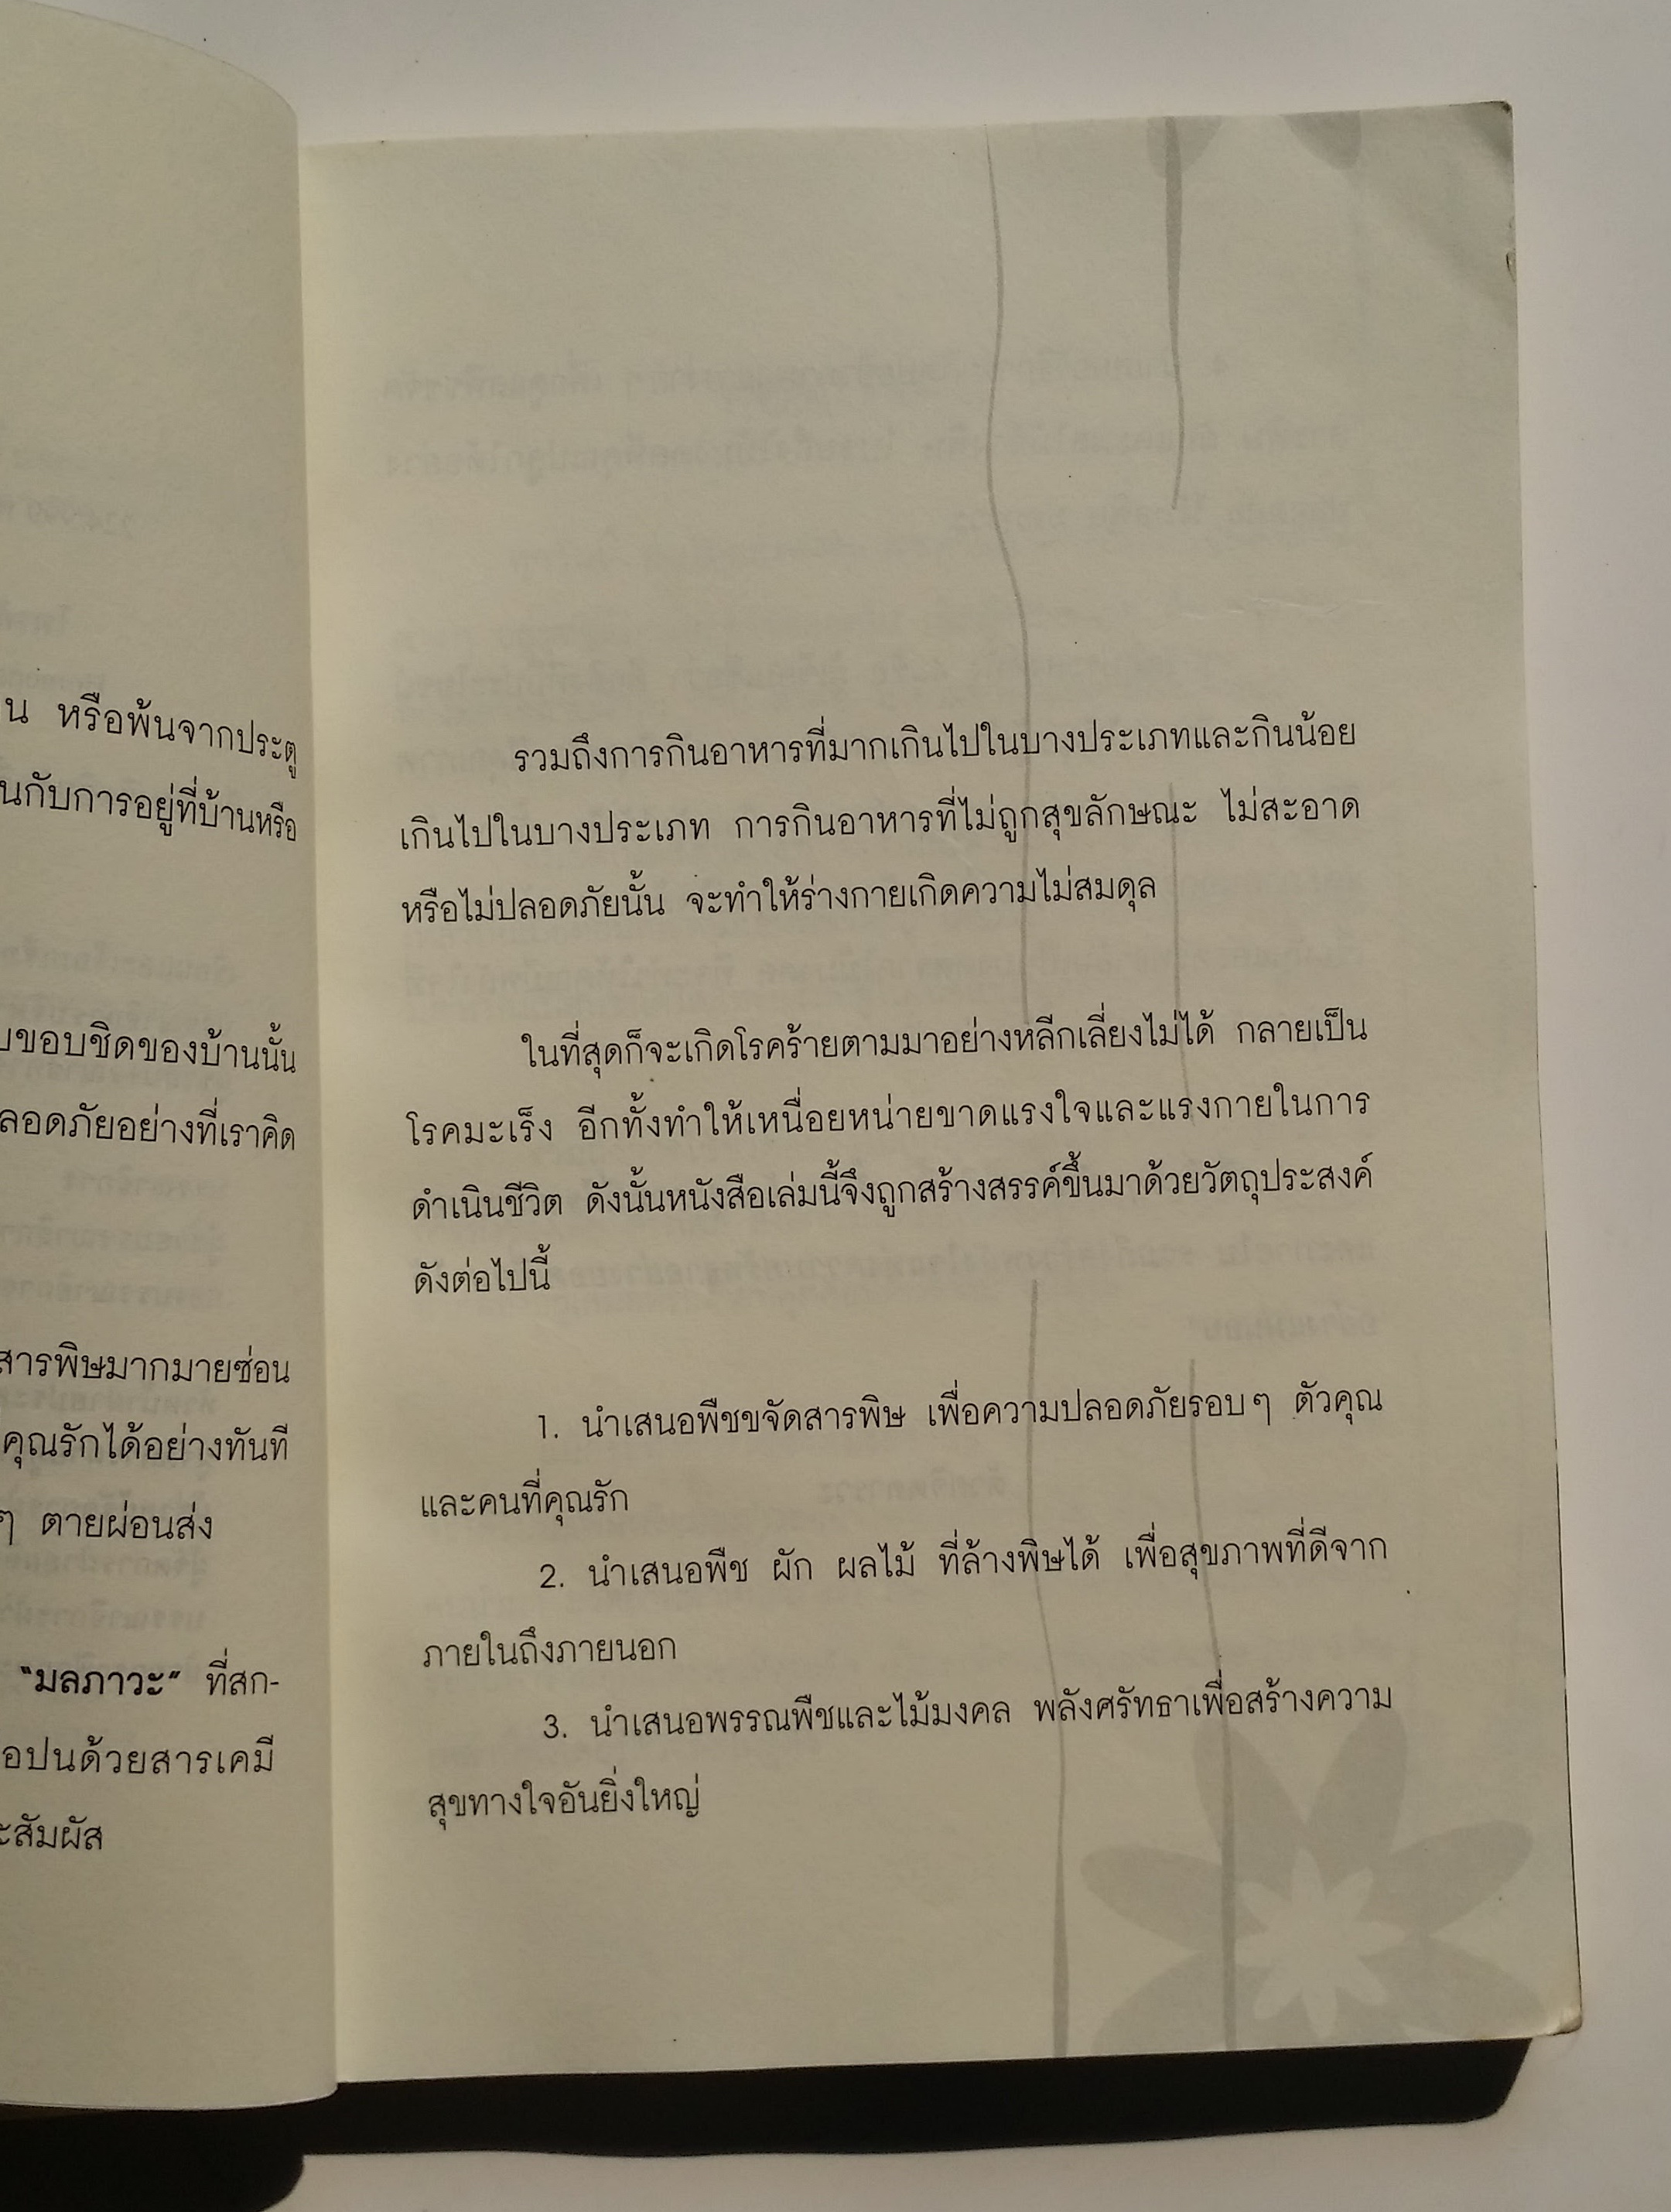 น หรือพ้นจากประตู
นกับการอยู่ที่บ้านหรือ
บขอบชิดของบ้านนั้น
ลอดภัยอย่างที่เราคิด
สารพิษมากมายซ่อน
คุณรักได้อย่างทันที
ๆ ตายผ่อนส่ง
“มลภาวะ” ที่สก-
อปนด้วยสารเคมี
ะสัมผัส
รวมถึงการกินอาหารที่มากเกินไปในบางประเภทและกินน้อย
เกินไปในบางประเภท การกินอาหารที่ไม่ถูกสุขลักษณะ ไม่สะอาด
หรือไม่ปลอดภัยนั้น จะทำให้ร่างกายเกิดความไม่สมดุล
ในที่สุดก็จะเกิดโรคร้ายตามมาอย่างหลีกเลี่ยงไม่ได้ กลายเป็น
โรคมะเร็ง อีกทั้งทำให้เหนื่อยหน่ายขาดแรงใจและแรงกายในการ
ดำเนินชีวิต ดังนั้นหนังสือเล่มนี้จึงถูกสร้างสรรค์ขึ้นมาด้วยวัตถุประสงค์
ดังต่อไปนี้
1. นำเสนอพืชขจัดสารพิษ เพื่อความปลอดภัยรอบๆ ตัวคุณ
และคนที่คุณรัก
2. นำเสนอพืช ผัก ผลไม้ ที่ล้างพิษได้ เพื่อสุขภาพที่ดีจาก
ภายในถึงภายนอก
3. นำเสนอพรรณพืชและไม้มงคล พลังศรัทธาเพื่อสร้างความ
สุขทางใจอันยิ่งใหญ่